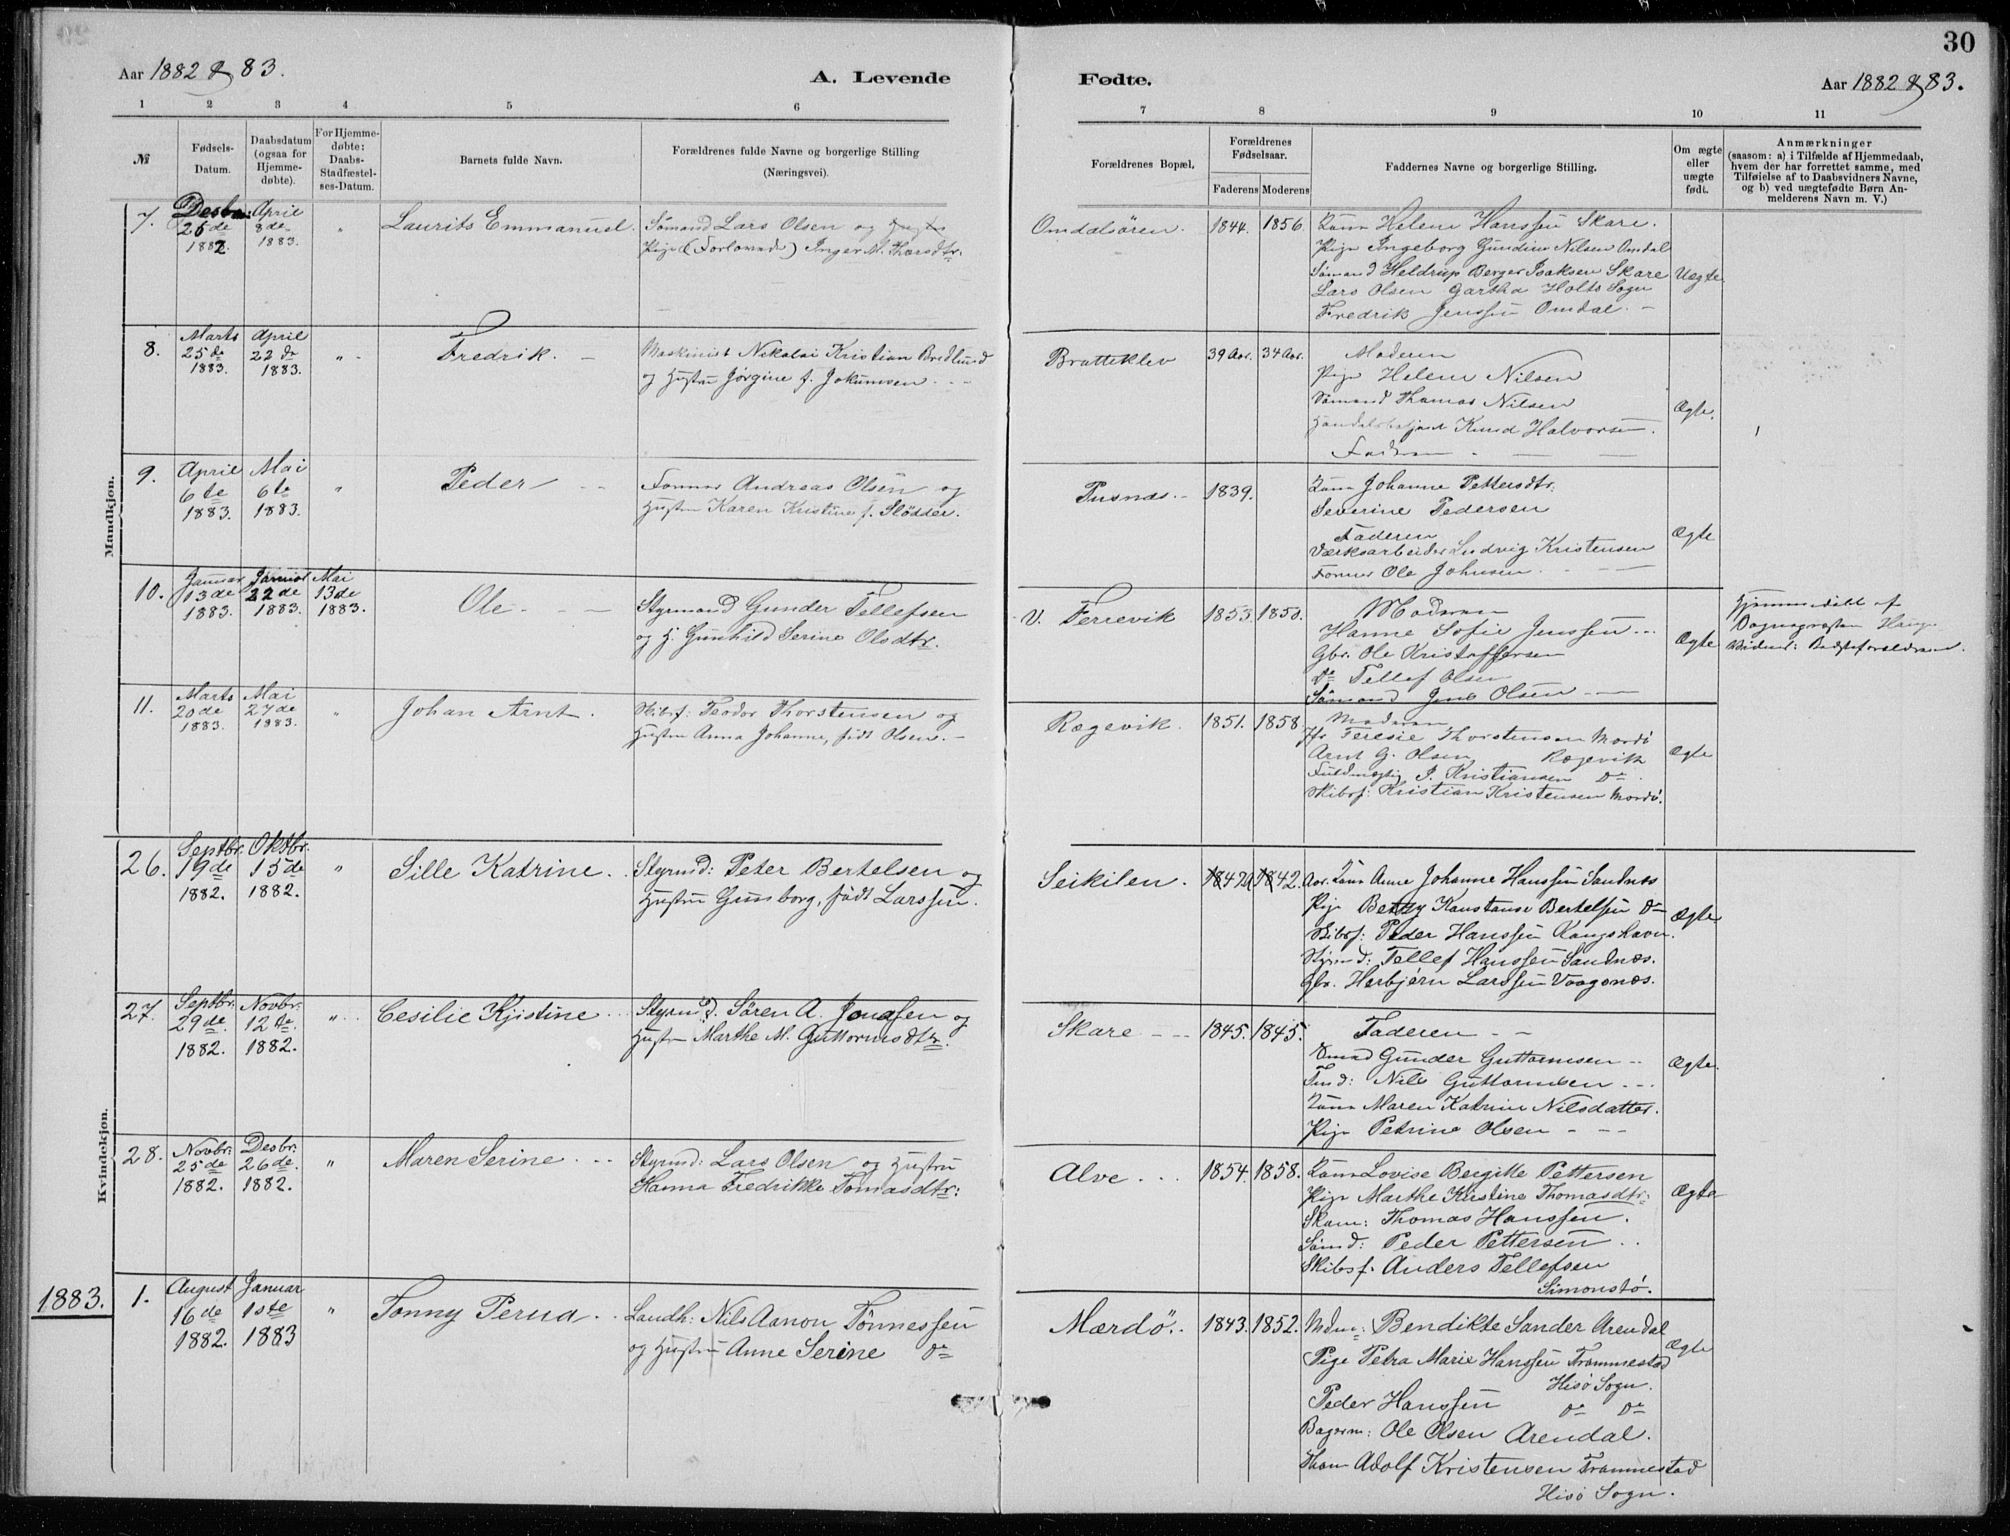 30
Aar 1882 & 83.
A. Levende
Fødte.
Aar 1882 & 83.
1 2 3 4 5 6 7 8 9 10 11
№
Fødsels-
Datum.
Daabsdatum
(ogsaa for
Hjemme-
døbte).
For Hjemme-
døbte:
Daabs-
Stadfæstel-
ses-Datum.
Barnets fulde Navn.
Forældrenes fulde Navne og borgerlige Stilling
(Næringsvei).
Forældrenes Bopæl.
Forældrenes
Fødselsaar.
Faderens Moderens
Faddernes Navne og borgerlige Stilling.
Om ægte
eller
uægte
født.
Anmærkninger
(saasom: a) i Tilfælde af Hjemmedaab,
hvem der har forrettet samme, med
Tilføielse af to Daabsvidners Navne,
og b) ved uægtefødte Børn An-
melderens Navn m. V.)
Mandkjøn.
7.
Desbr:
25de
1882
April
8de
1883.
"
Laurits Emmanuel.
Sømand Lars Olsen og
Pige (Forlovede) Inger M. Tharsdtr.
Omdalsören.
1844. 1856.
Kone Helene Hanssen Skare.
Pige Ingeborg Gundine Nilsen Omdal
Sømand Heldrup Berger Isaksen Skare
Lars Olsen Gartha Holts Sogn
Fredrik Jenssen Omdal. -
Uægte
8.
Marts
25de
1883.
April
22de
1883.
"
Fredrik. -
Maskinist Nikolai Kristian Bredlund
og Hustru Jørgine f. Jokumsen. - -
Bratteklev
39 Aar. 34 Aar.
Moderen
Pige Helene Nilsen
Sømand Thomas Nilsen
Knud Halvorsen.
Faderen
Ægte.
9.
April
6te
1883.
Mai
6te
1883.
"
Peder - -
Former Andreas Olsen og
Hustru Karen Kristine f. Slödder.
Pusnæs. -
1839.
Kone Johanne Pettersdtr.
Severine Pedersen
Faderen
Værksarbeider Ludvig Kristensen
Former Ole Johnsen.
Ægte
10.
Januar
13de
1883.
Januar
22de
1883.
Mai
13de
1883.
Ole. - -
Styrmand Gunder Tellefsen
og H. Gunhild Serine Olsdtr.
V. Ferrevik
1853. 1858.
Moderen
Hanne Sofie Jenssen. - -
Gbr. Ole Kristoffersen
Do Tellef Olsen
Sømand Jens Olsen - -
Ægte
Hjemmedøbt af
11.
Marts
20de
1883.
Mai
27de
1883.
"
Johan Arnt.
Skibsf: Teodor Thorstensen og
Hustru Anna Johanne, født Olsen. -
Rægevik.
1851. 1858.
Moderen
Teresie Thorstensen Mærdö
Arnt G. Olsen Rægevik
Fuldmægtig J. Kristiansen Do
Skibsf: Kristian Kristensen Mærdö.
Ægte
Kvindekjøn.
26.
Septbr.
19de
1882.
Oktbr.
15de
1882.
"
Sille Katrine.
Styrmd: Peter Bertelsen og
Hustru Gunborg, født Larssen.
Seikilen.
1842.
Kone Anne Johanne Hanssen Sandnæs
Pige Betzy Konstanse Bertelsen Do
Skibsf: Peder Hanssen Kongshavn.
Styrmd: Tellef Hanssen Sandnæs.
Gbr. Herbjørn Larssen Vaagsnæs.
Ægte
27.
Septbr.
29de
1882.
Novbr.
12te.
1882.
"
Cesilie Kjistine. -
Styrmd. Sören A. Jonassen og
Hustru Marthe M. Guttormsdtr.
Skare - -
1845. 1845.
Faderen - -
Gunder Guttormsen - -
Nils Guttormsen - -
Kone Maren Katrine Nilsdatter.
Pige Petrine Olsen - - -
Ægte.
28.
Novbr.
25de
1882.
Desbr:
26de.
1882.
"
Maren Serine. - -
Styrmd: Lars Olsen og Hustru
Hanna Fredrikke Tomasdtr:
Alve. . .
1854. 1858.
Kone Lovise Bergitte Pettersen
Pige Marthe Kirstine Thomasdtr:
Thomas Hanssen.
Sømd: Peder Pettersen . .
Skibsf. Anders Tellefsen
Simonstø.
Ægte
1883.
1.
August
16de
1882.
Januar
1ste
1883
"
Tonny Perua . .
Landh: Nils Aanon Tönnessen
og Hustru Anne Serine Do
Mærdö. .
1843. 1852.
Bendikte Sander Arendal
Pige Petra Marie Hanssen Trommestad
Hisø Sogn.
Peder Hanssen Do Do
Bagerm: Ole Olsen Arendal.
Adolf Kristensen Trommestad
Hisø Sogn.
Ægte